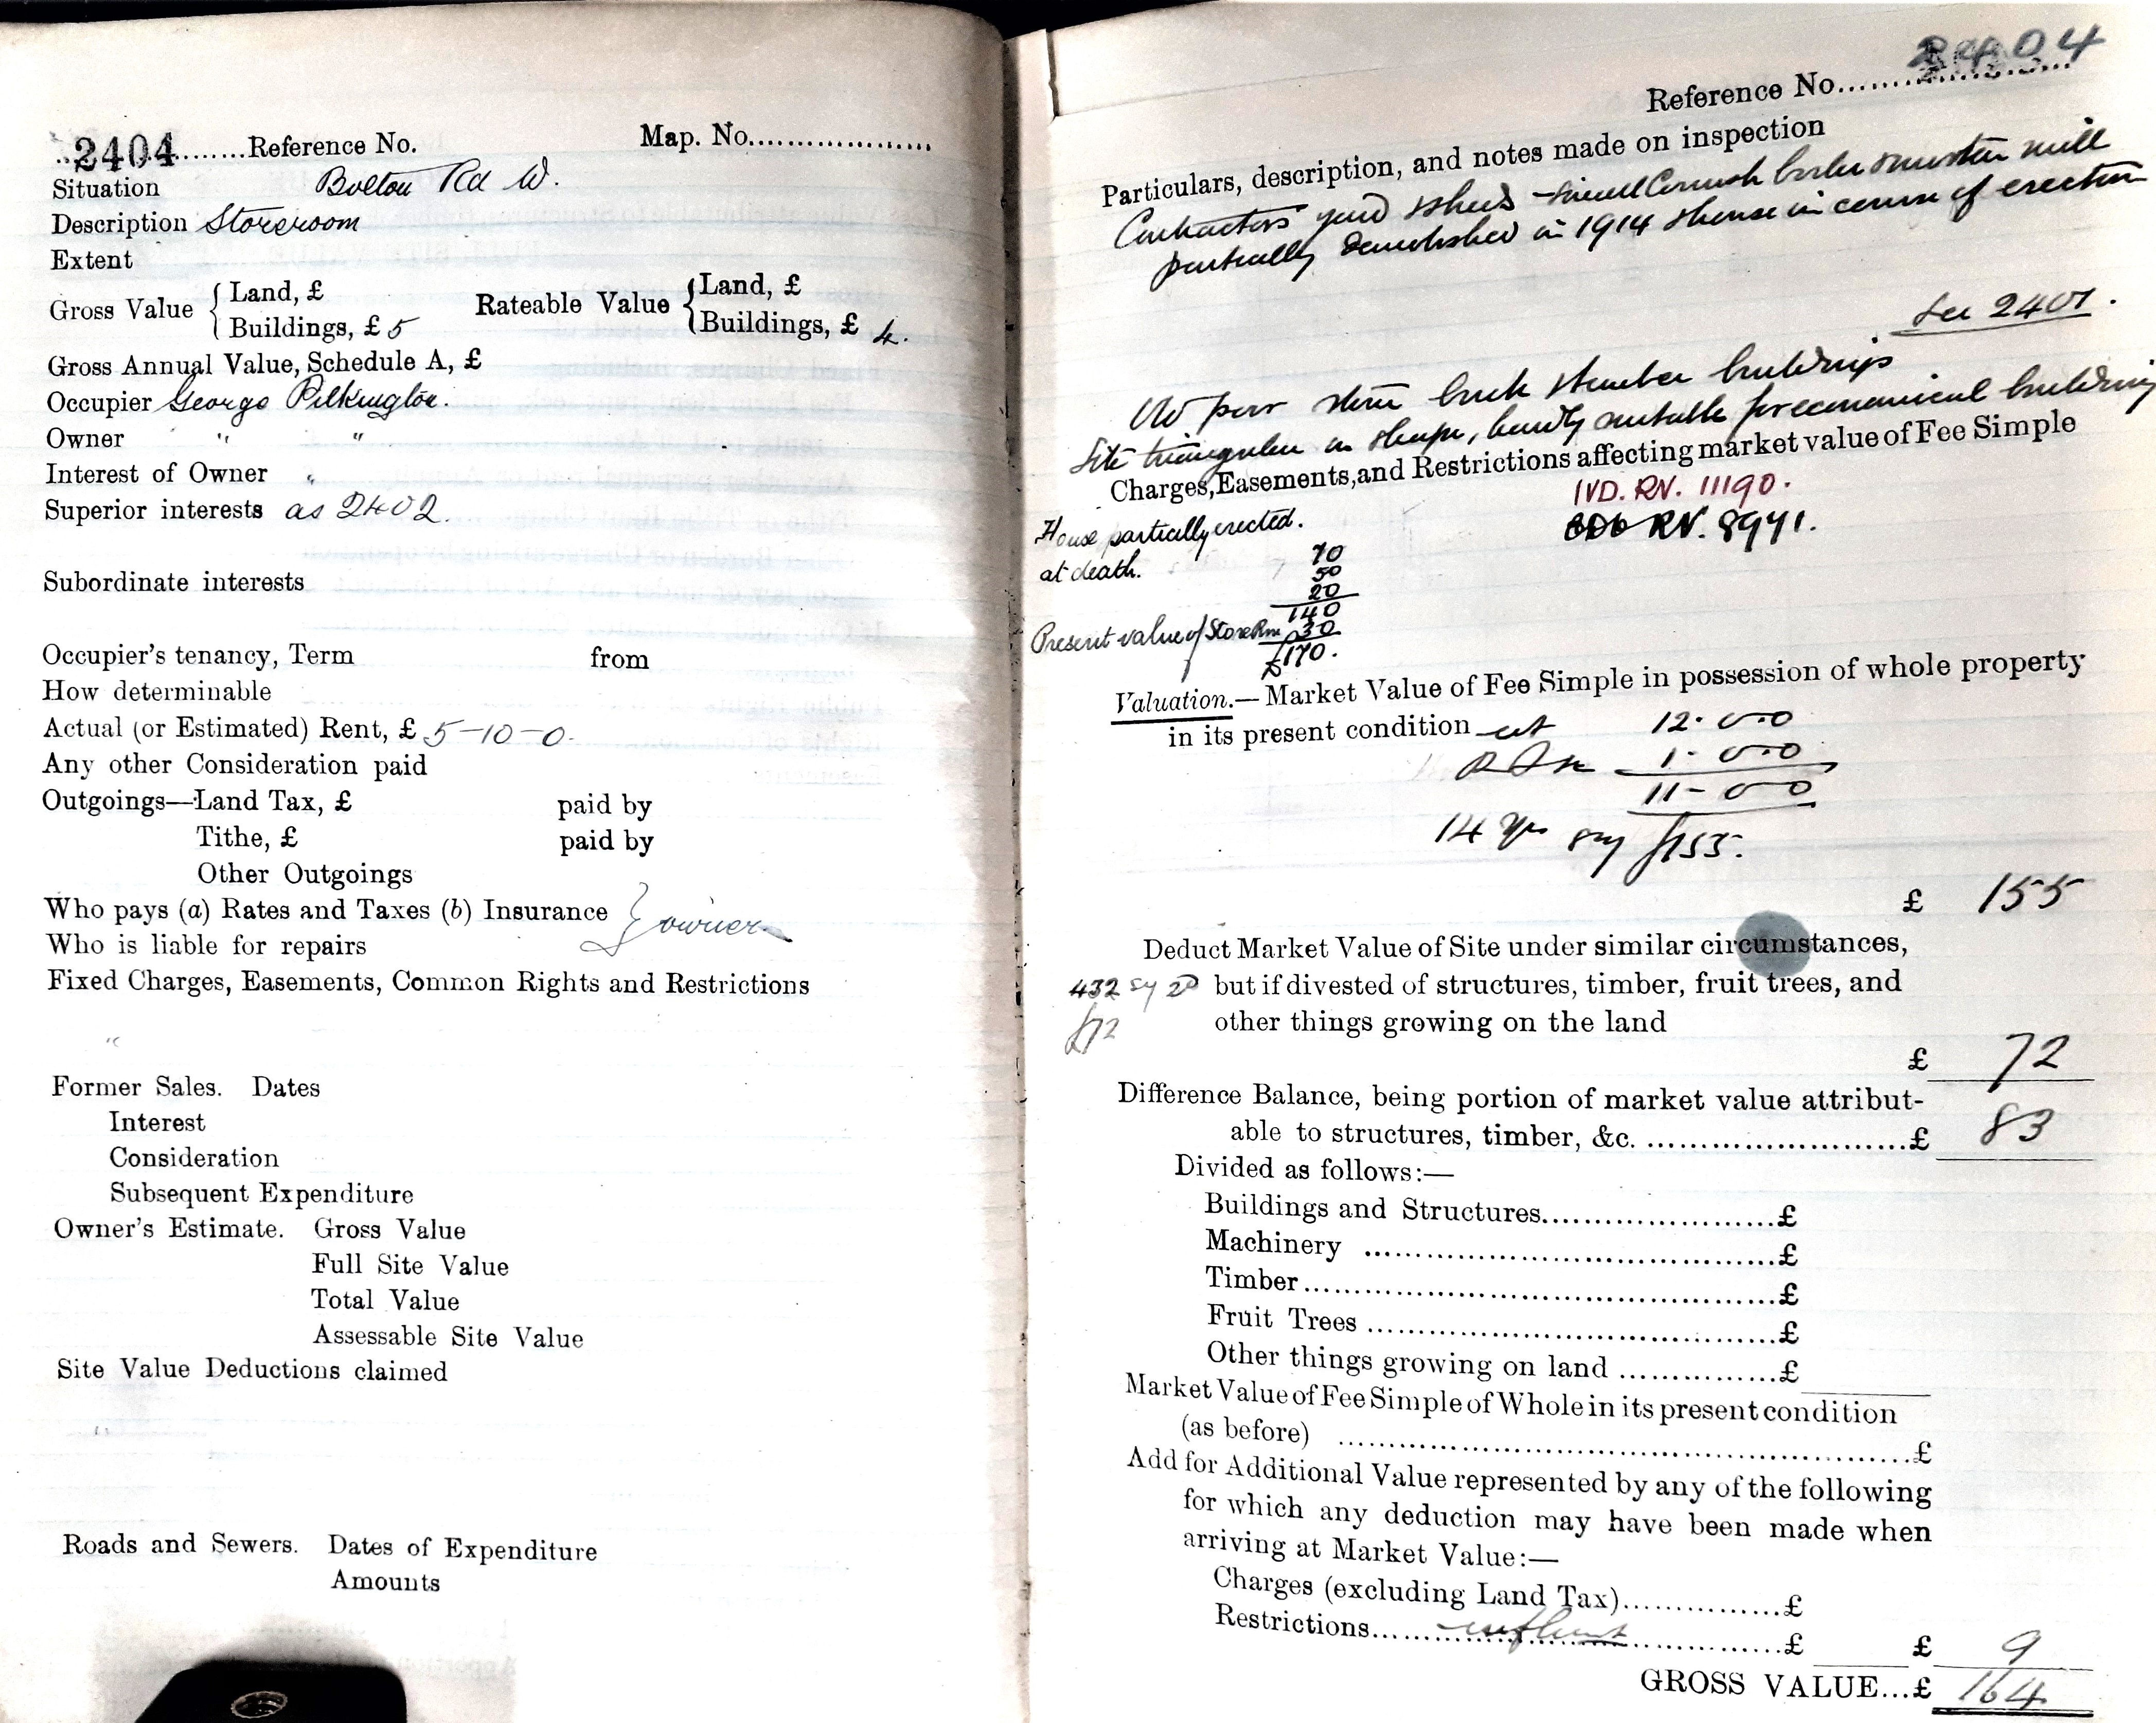 2404 Reference No. Map. No.
Situation Bolton Rd W.
Description Storeroom
Extent
Gross Value { Land, £
Buildings, £ 5
Rateable Value { Land, £
Buildings, £ 4.
Gross Annual Value, Schedule A, £
Occupier George Pilkington.
Owner " "
Interest of Owner "
Superior interests as 2402.
Subordinate interests
Occupier's tenancy, Term from
How determinable
Actual (or Estimated) Rent, £ 5-10-0.
Any other Consideration paid
Outgoings—Land Tax, £ paid by
Tithe, £ paid by
Other Outgoings
Who pays (a) Rates and Taxes (b) Insurance } owner
Who is liable for repairs
Fixed Charges, Easements, Common Rights and Restrictions
Former Sales. Dates
Interest
Consideration
Subsequent Expenditure
Owner's Estimate. Gross Value
Full Site Value
Total Value
Assessable Site Value
Site Value Deductions claimed
Roads and Sewers. Dates of Expenditure
Amounts
2404
Reference No.
Particulars, description, and notes made on inspection
Contractors yard & sheds - small Cornish boiler & mortar mill
partially demolished in 1914 & house in course of erection
See 2401.
Old poor stone brick & timber buildings
Site triangular in shape, hardly suitable for economical building
Charges, Easements, and Restrictions affecting market value of Fee Simple
IVD. RV. 11190.
RV. 8941.
House partially erected.
at death.
70
50
20
140
Present value of Store Rm 30
£170.
Valuation.—Market Value of Fee Simple in possession of whole property
in its present condition at 12.0.0
1.0.0
11-0-0
14 yrs say £155.
£ 155
Deduct Market Value of Site under similar circumstances,
432 sy
but if divested of structures, timber, fruit trees, and
£72
other things growing on the land
£ 72
Difference Balance, being portion of market value attribut-
able to structures, timber, &c. £ 83
Divided as follows:—
Buildings and Structures £
Machinery £
Timber £
Fruit Trees £
Other things growing on land £
Market Value of Fee Simple of Whole in its present condition
(as before) £
Add for Additional Value represented by any of the following
for which any deduction may have been made when
arriving at Market Value:—
Charges (excluding Land Tax) £
Restrictions £ £ 9
GROSS VALUE...£ 164